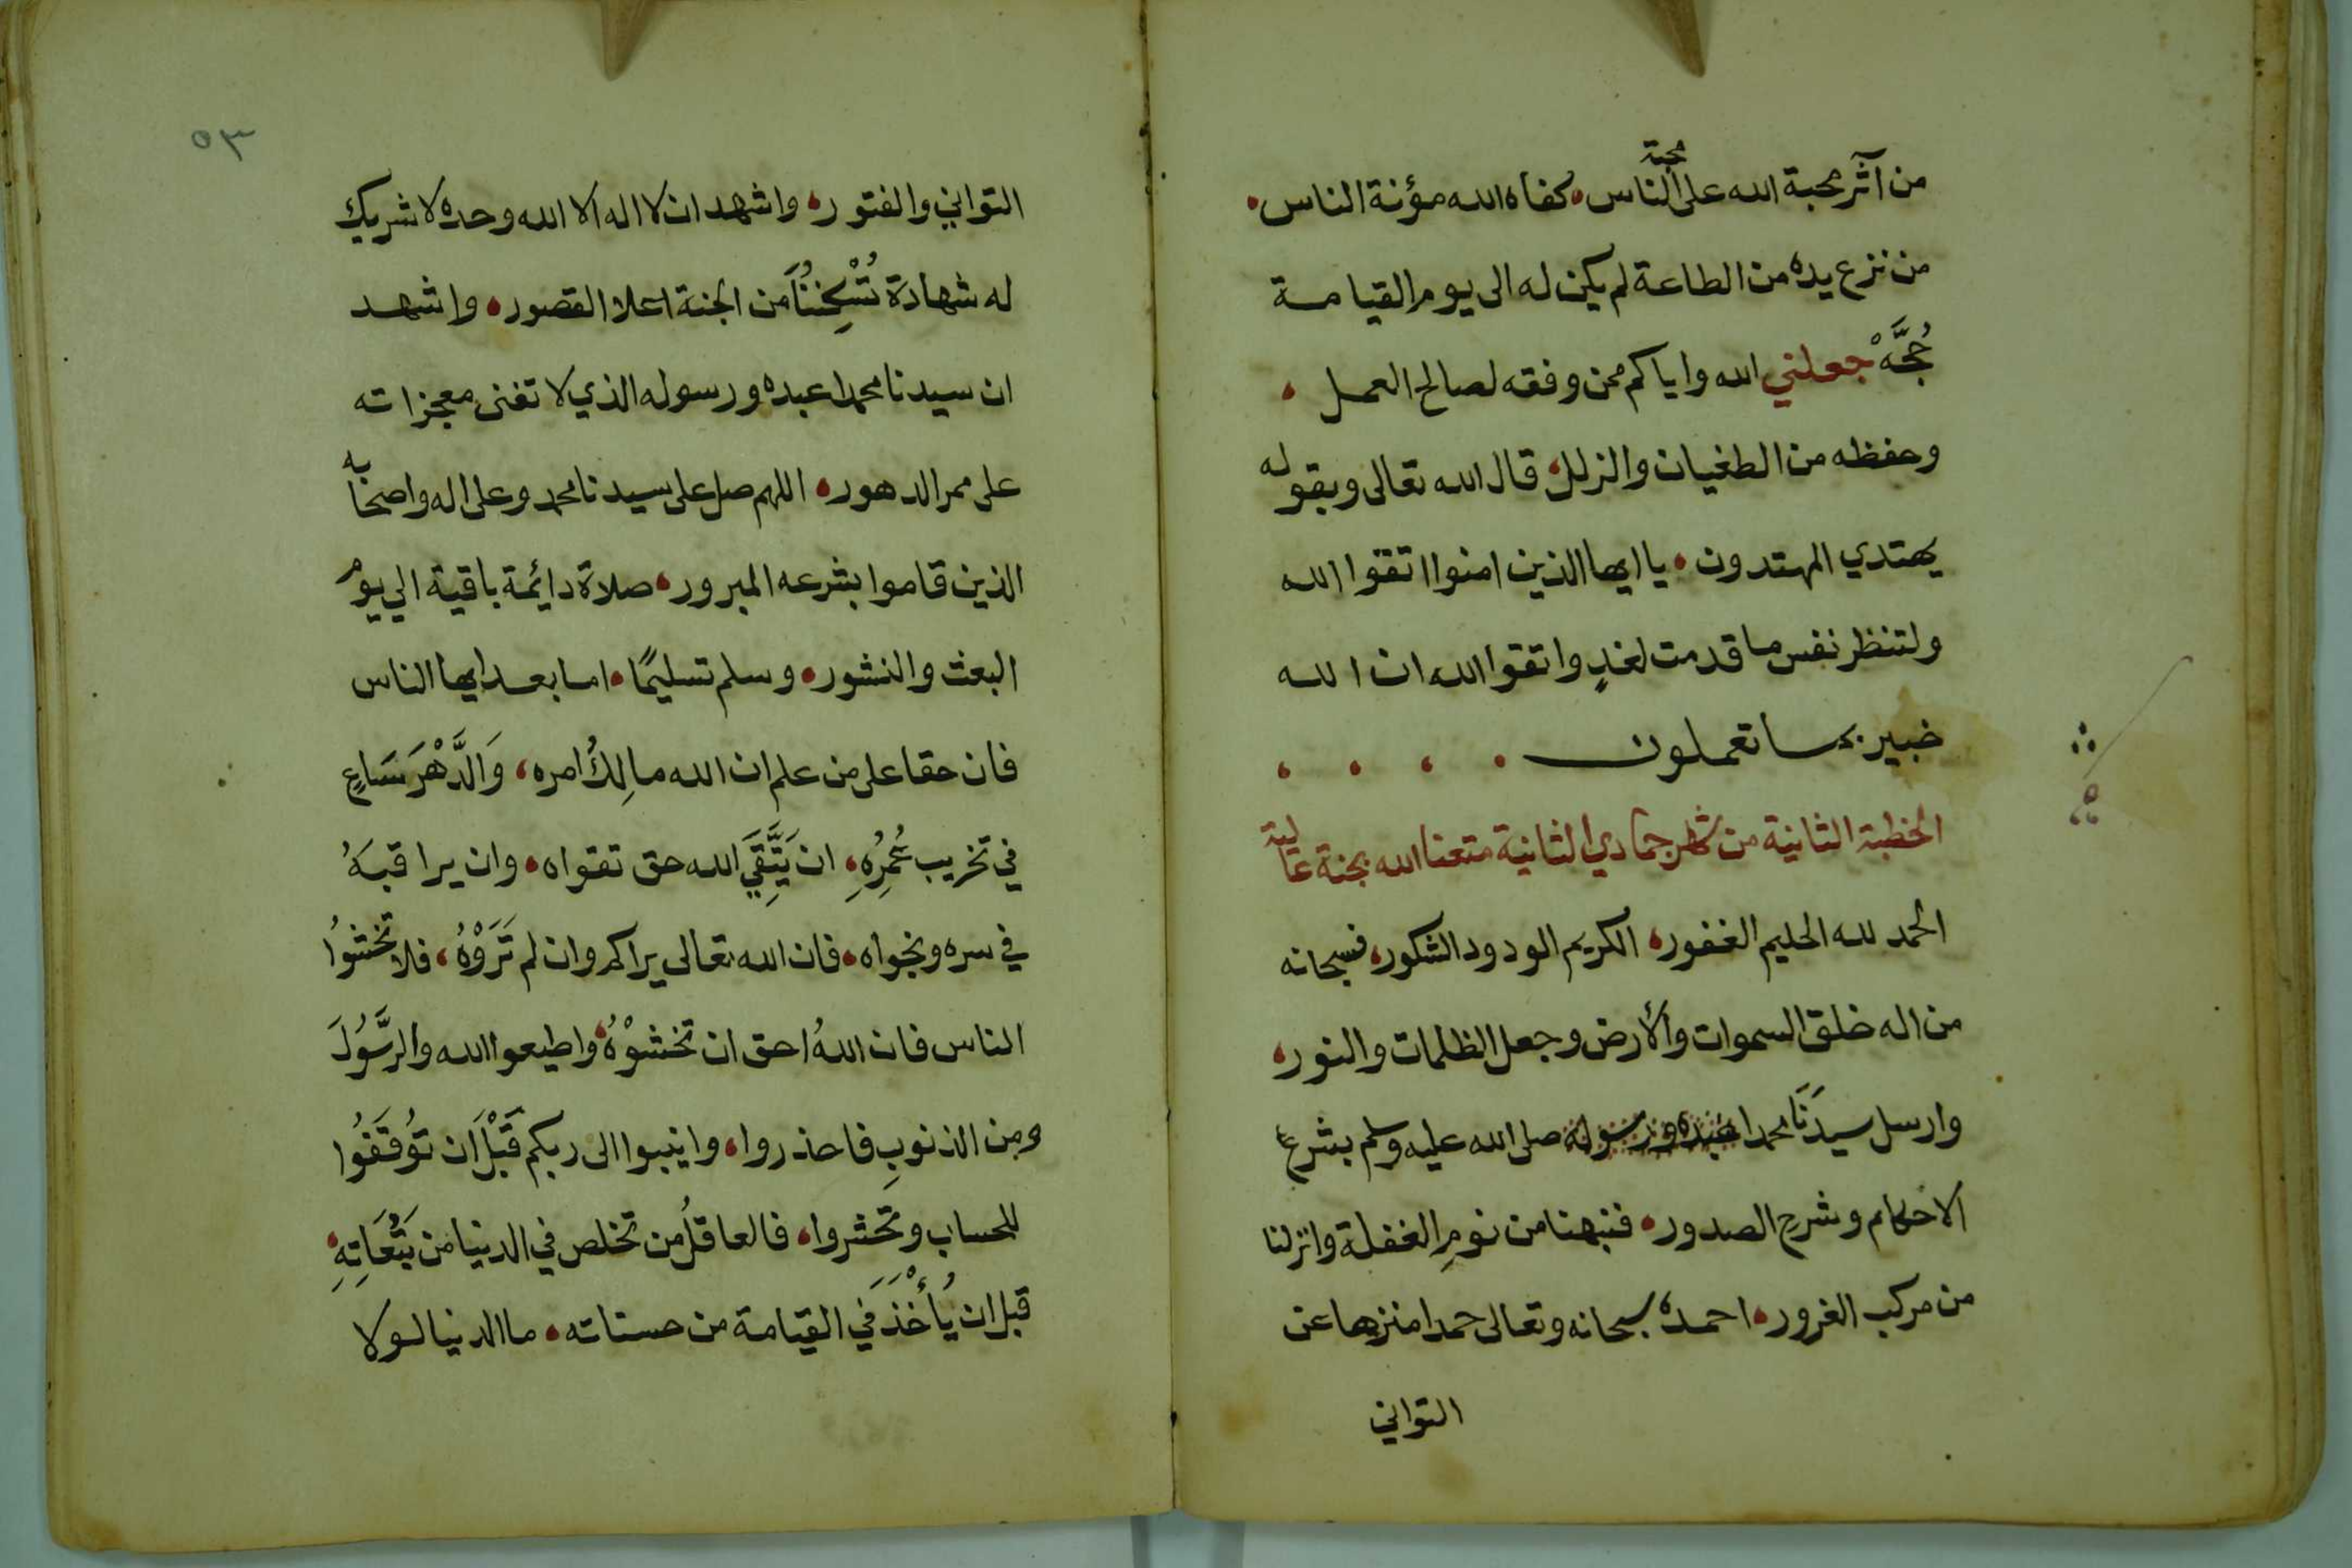 من آثر محبة الله على محبة الناس، كفاه الله مؤنة الناس،
من نزع يده من الطاعة لم يكن له الى يوم القيامة
حُجَّهْ جعلني الله واياكم ممن وفقه لصالح العمل،
وحفظه من الطغيان والزلل، قال الله تعالى وبقوله
يهتدي المهتدون، يا ايها الذين امنوا اتقوا الله
ولتنظر نفس ما قدمت لغدٍ واتقوا الله ان الله
خبير بما تعملون ، ، ، ،
الخطبة الثانية من شهر جمادي الثانية متعنا الله بجنة عالية
الحمد لله الحليم الغفور، الكريم الودود الشكور، فسبحانه
من اله خلق السموات والأرض وجعل الظلمات والنور،
وارسل سيدَنَا محمدا عبده ورسوله صلى الله عليه وسلم بشرع
الاحكام وشرح الصدور، فنبهنا من نومِ الغفلة وانزلنا
من مركب الغرور، احمده سبحانه وتعالى حمدا منزها عن
التواني
٥٣
التواني والفتور، واشهد ان لا اله الا الله وحده لا شريك
له شهادة تُسْكِنُنَا من الجنة اعلا القصور، واشهد
ان سيدنا محمدا عبده ورسوله الذي لا تفنى معجزاته
على ممر الدهور، اللهم صل على سيدنا محمد وعلى اله واصحابه
الذين قاموا بشرعه المبرور، صلاة دايمة باقية الي يوم
البعث والنشور، وسلم تسليمًا، اما بعد ايها الناس
فان حقا على من علم ان الله مالِكُ امره، وَالدَّهْرَ سَاعٍ
في تخريب عُمُرِهِ، ان يَتَّقِيَ الله حق تقواه، وان يراقبَهُ
في سره ونجواه، فان الله تعالى يراكم وان لم تَرَوْهُ، فلا تخشوُا
الناس فان اللهُ احق ان تخشوْهُ، واطيعوا الله والرَّسُولَ
ومن الذنوبِ فاحذروا، وانيبوا الى ربكم قَبْلَ ان تُوقَفُوا
للحساب وتُحشروا، فالعاقلُ من تخلص في الدنيا من تَبُعَاتِهِ،
قبل ان يُأْخَذَ في القيامة من حسناته، ما الدنيا لولا